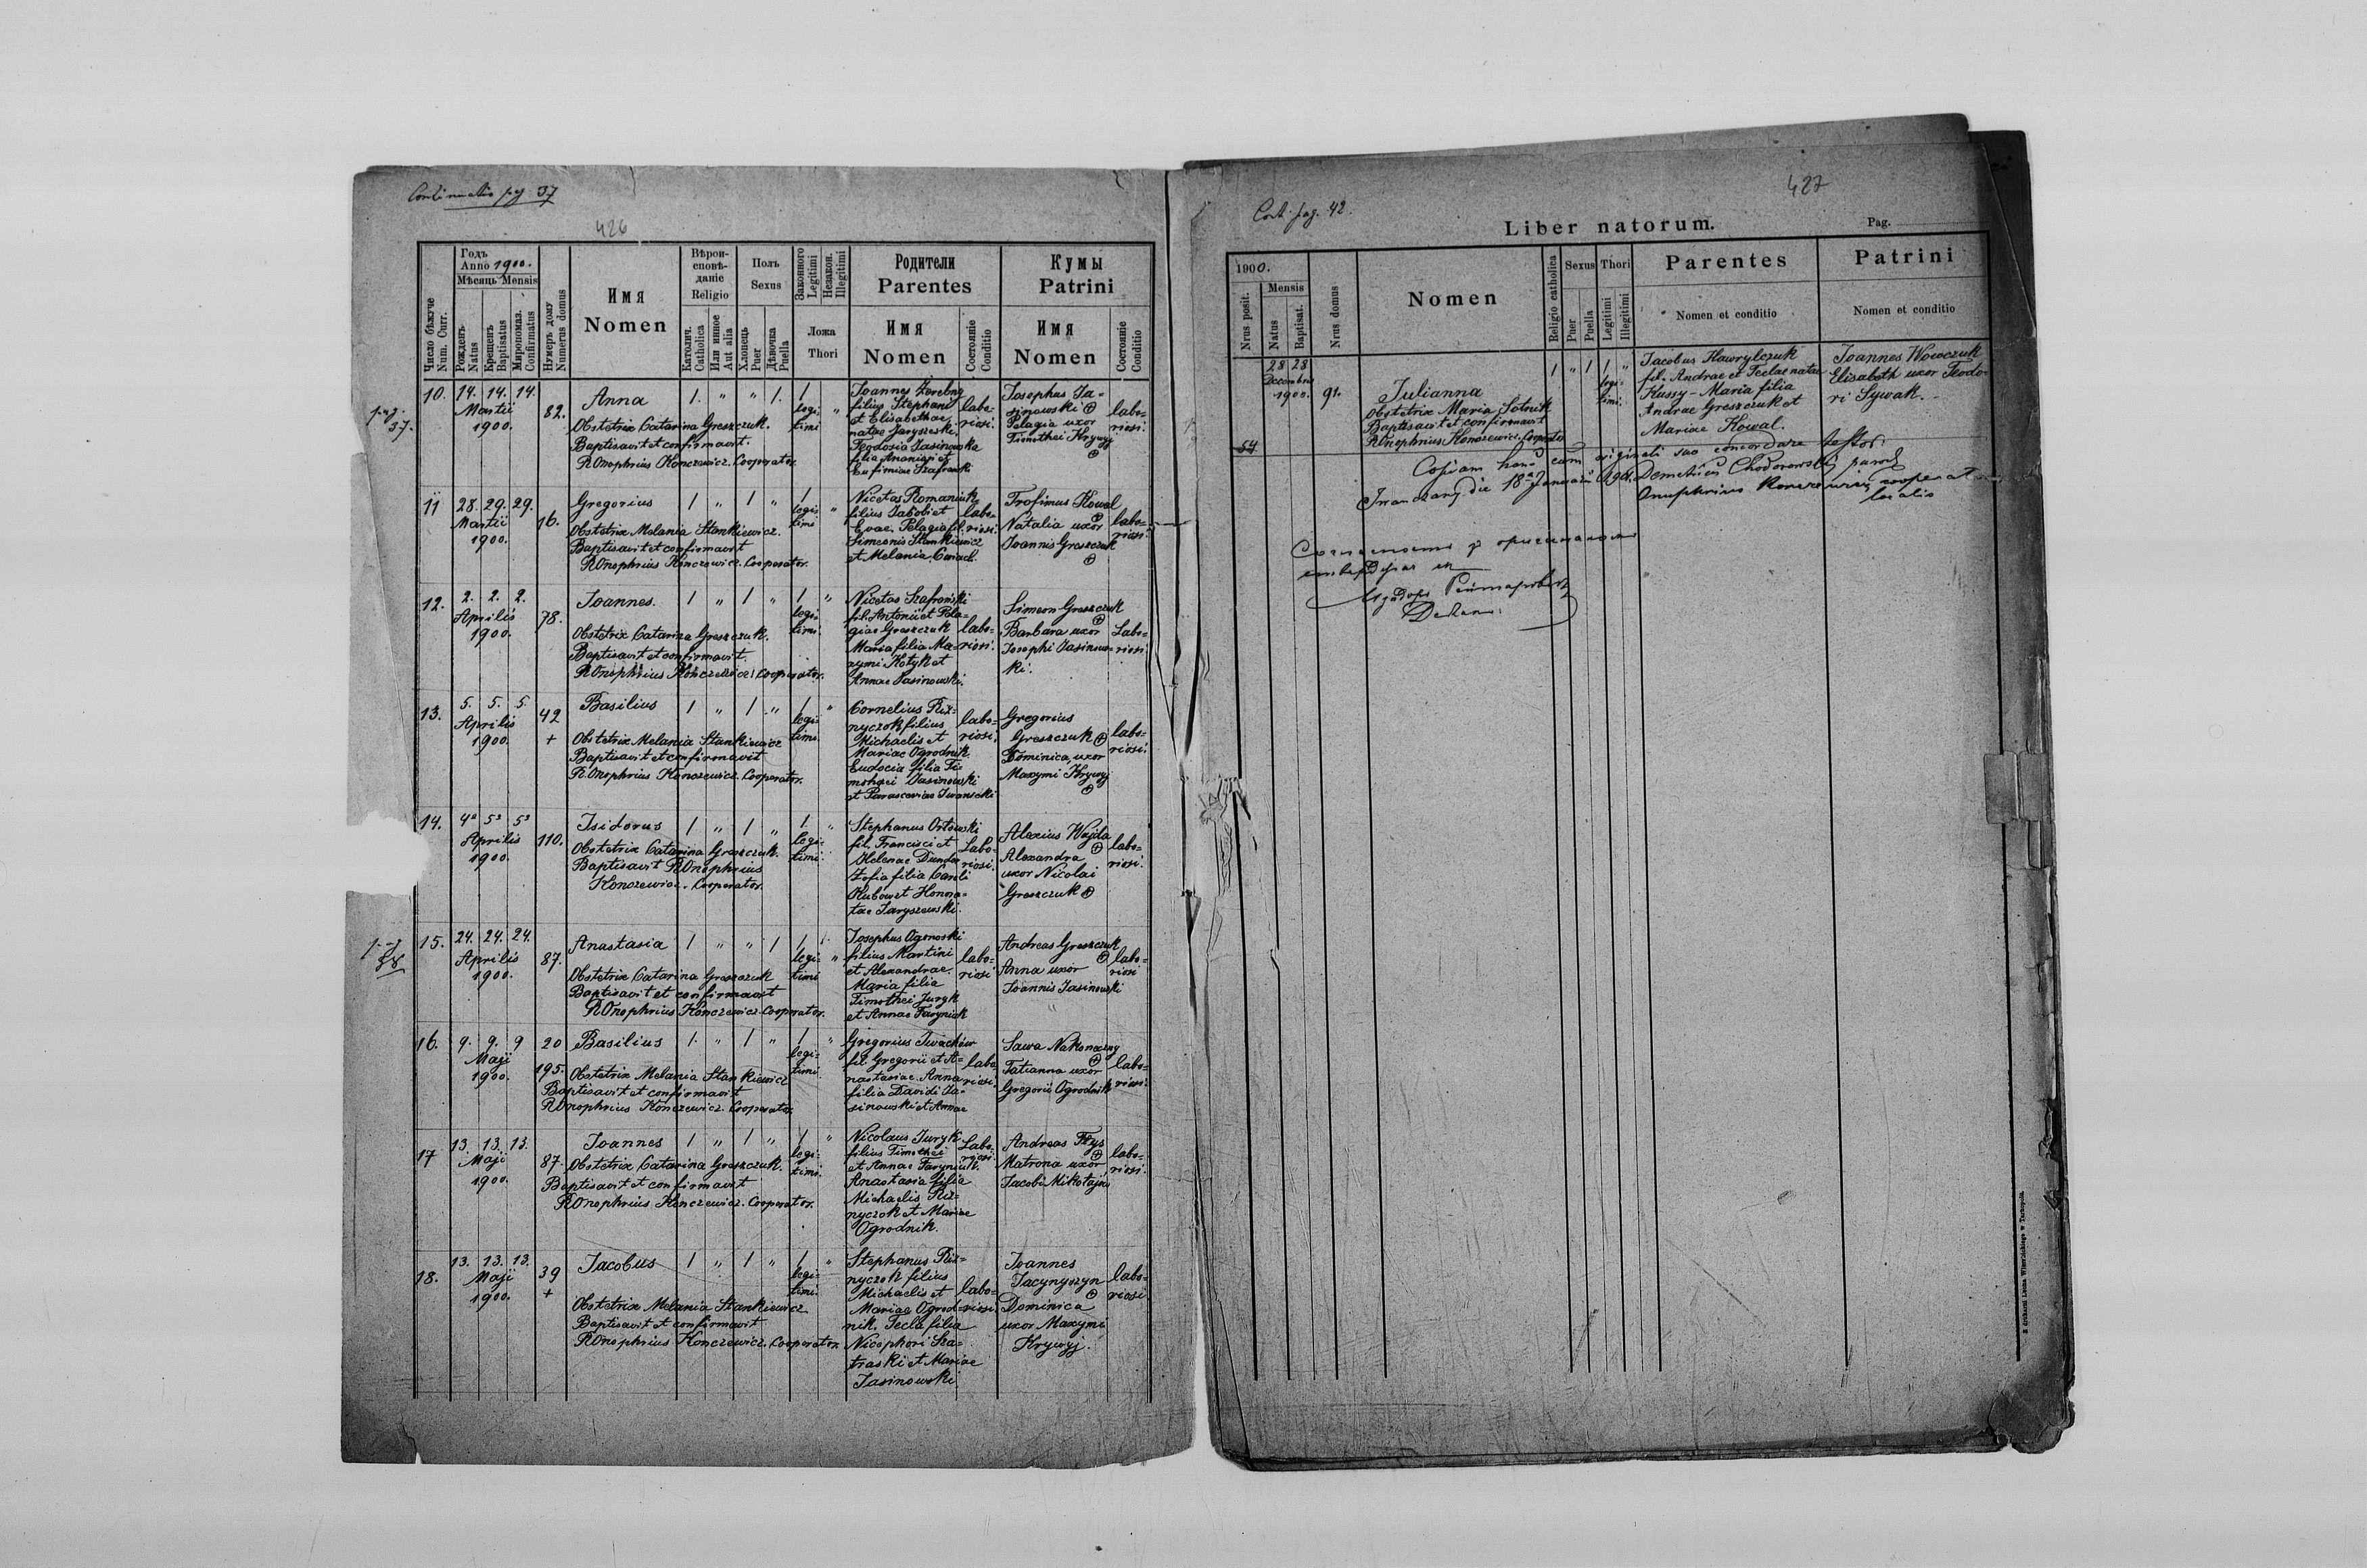 Continuatio pag 37
426
Годъ
Anno 1900.
Мѣсяць Mensis
Число бѣжуче
Num. Curr.
Рожденъ
Natus
Крещенъ
Baptisatus
Миропомаз.
Confirmatus
Нумеръ дому
Numerus domus
Имя
Nomen
Вѣрои-
сповѣ-
даніе
Religio
Католич.
Catholica
Или инное
Aut alia
Полъ
Sexus
Хлопець
Puer
Дѣвочка
Puella
Законного
Legitimi
Незакон.
Illegitimi
Ложа
Thori
Родители
Parentes
Имя
Nomen
Состояніе
Conditio
Кумы
Patrini
Имя
Nomen
Состояніе
Conditio
pag.
37.
10. 14. 14. 14.
Martii
1900.
82.
Anna
1. " " 1. 1 "
legi-
timi
Obstetrix Catarina Greszczuk.
Baptisavit et confirmavit.
R Onophrius Konczewicz. Cooperator.
Joannes Zerebny
filius Stephani
et Elisabethae
natae Jaryszeski.
Teodozia Jasinowska
filia Ananiae et
Eufimiae Szafranski
labo-
riosi.
Josephus Ja-
sinowski
Pelagia uxor
Timothei Krywyj
labo-
riosi.
11 28. 29. 29.
Martii
1900.
16.
Gregorius
1 " 1 " 1 "
legi-
timi
Obstetrix Melania Stankiewicz.
Baptisavit et confirmavit
R Onophrius Konczewicz. Cooperator.
Nicetas Romaniuk
filius Jakobi et
Evae. Pelagia fil.
Simeonis Stankiewicz
et Melania
labo-
riosi.
Trofimus Kowal
Natalia uxor
Joannis Greszczuk
labo-
riosi.
12. 2. 2. 2.
Aprilis
1900.
78.
Joannes.
1 " 1 " 1 "
legi-
timi.
Obstetrix Catarina Greszczuk.
Baptisavit et confirmavit.
R Onophrius Konczewicz Cooperator.
Nicetas Szafrański
fil. Antonii et Pela-
giae Greszczuk
Maria filia Ma-
xymi Kotyk et
Annae Jasinowski.
labo-
riosi.
Simeon Greszczuk
Barbara uxor
Josephi Jasinows-
ki.
Labo-
riosi.
13. 5. 5. 5
Aprilis
1900.
42
+
Basilius
1 " 1 " 1 "
legi-
timi.
Obstetrix Melania Stankiewicz
Baptisavit et confirmavit
R Onophrius Konczewicz. Cooperator.
Cornelius Riz-
nyczok filius
Michaelis et
Mariae Ogrodnik.
Eudocia filia Ti-
mothei Jasinowski
et Parasceviae Iwansicki
labo-
riosi.
Gregorius
Greszczuk
Dominica uxor
Maxymi Krywyj
labo-
riosi.
14. 4a 5a 5a
Aprilis
1900.
110.
Isidorus
1 " 1 " 1 "
legi-
timi.
Obstetrix Catarina Greszczuk.
Baptisavit R Onophrius
Konczewicz. Cooperator.
Stephanus Orłowski
fil. Francisci et
Helenae Dunda
Zofia filia Caroli
et Honora-
tae Jaryszewski.
Labo-
riosi.
Alexius Wajda
Alexandra
uxor Nicolai
Greszczuk
labo-
riosi.
15. 24. 24. 24.
Aprilis
1900.
87.
Anastasia
1 " " 1 1 "
legi-
timi
Obstetrix Catarina Greszczuk
Baptisavit et confirmavit
R Onophrius Konczewicz. Cooperator.
Josephus Ogonoski
filius Martini
et Alexandrae.
Maria filia
Timothei Juryk
et Annae Faryniak
labo-
riosi
Andreas Greszczuk
Anna uxor
Joannis Jasinowski
labo-
riosi
16. 9. 9. 9
Maji
1900.
20
195.
Basilius
1. " 1 " 1 "
legi-
timi
Obstetrix Melania Stankiewicz
Baptisavit et confirmavit
R Onophrius Konczewicz. Cooperator.
Gregorius Iwachów
fil. Gregorii et A-
nastasiae. Anna
filia Davidi Ja-
sinowski et Annae
labo-
riosi.
Sawa Nakoneczny
Tatianna uxor
Gregorii Ogrodnik
labo-
riosi.
17 13. 13. 13.
Maji
1900.
87.
Joannes
1 " 1 " 1 "
legi-
timi.
Obstetrix Catarina Greszczuk.
Baptisavit et confirmavit
R Onophrius Konczewicz. Cooperator.
Nicolaus Juryk
filius Timothei
et Annae Faryniak.
Anastasia filia
Michaelis Riz-
nyczok et Mariae
Ogrodnik.
Labo-
riosi.
Andreas
Matrona uxor
Jacobi Mikołajów
labo-
riosi.
18. 13. 13. 13.
Maji
1900.
39
+
Jacobus
1 " 1 " 1 "
legi-
timi.
Obstetrix Melania Stankiewicz
Baptisavit et confirmavit
R Onophrius Konczewicz. Cooperator.
Stephanus Riz-
nyczok filius
Michaelis et
Mariae Ogrod-
nik. Tecla filia
Nicephori Sza-
traski et Mariae
Jasinowski
labo-
riosi.
Joannes
Jacynyszyn
Dominica
uxor Maxymi
Krywyj.
labo-
riosi
427
Cont. pag. 42.
Liber natorum.
Pag.
1900.
Mensis
Nrus. posit.
Natus
Baptisat.
Nrus domus
Nomen
Religio catholica
Sexus
Puer
Puella
Thori
Legitimi
Illegitimi
Parentes
Nomen et conditio
Patrini
Nomen et conditio
54
28 28
Decembris
1900.
91.
Julianna
Obstetrix Maria Sotnik
Baptisavit et confirmavit
R Onophrius Konczewicz. Cooperator
1 " 1 1 "
legi-
timi.
Jacobus Hawrylczuk
fil. Andrae et Teclae natae
Kussy - Maria filia
Andrae Greszczuk et
Mariae Kowal.
Joannes Wowczuk
Elisabeth uxor Teodo-
ri Sywak.
Copiam hanc cum originali suo concordare testor.
Iwanczany die 18 Januarii 1901. Demetrius Chodorowski paroch
Onuphrius Konczewicz cooperator
localis
Z drukarni Leona Wierzbickiego w Tarnopolu.